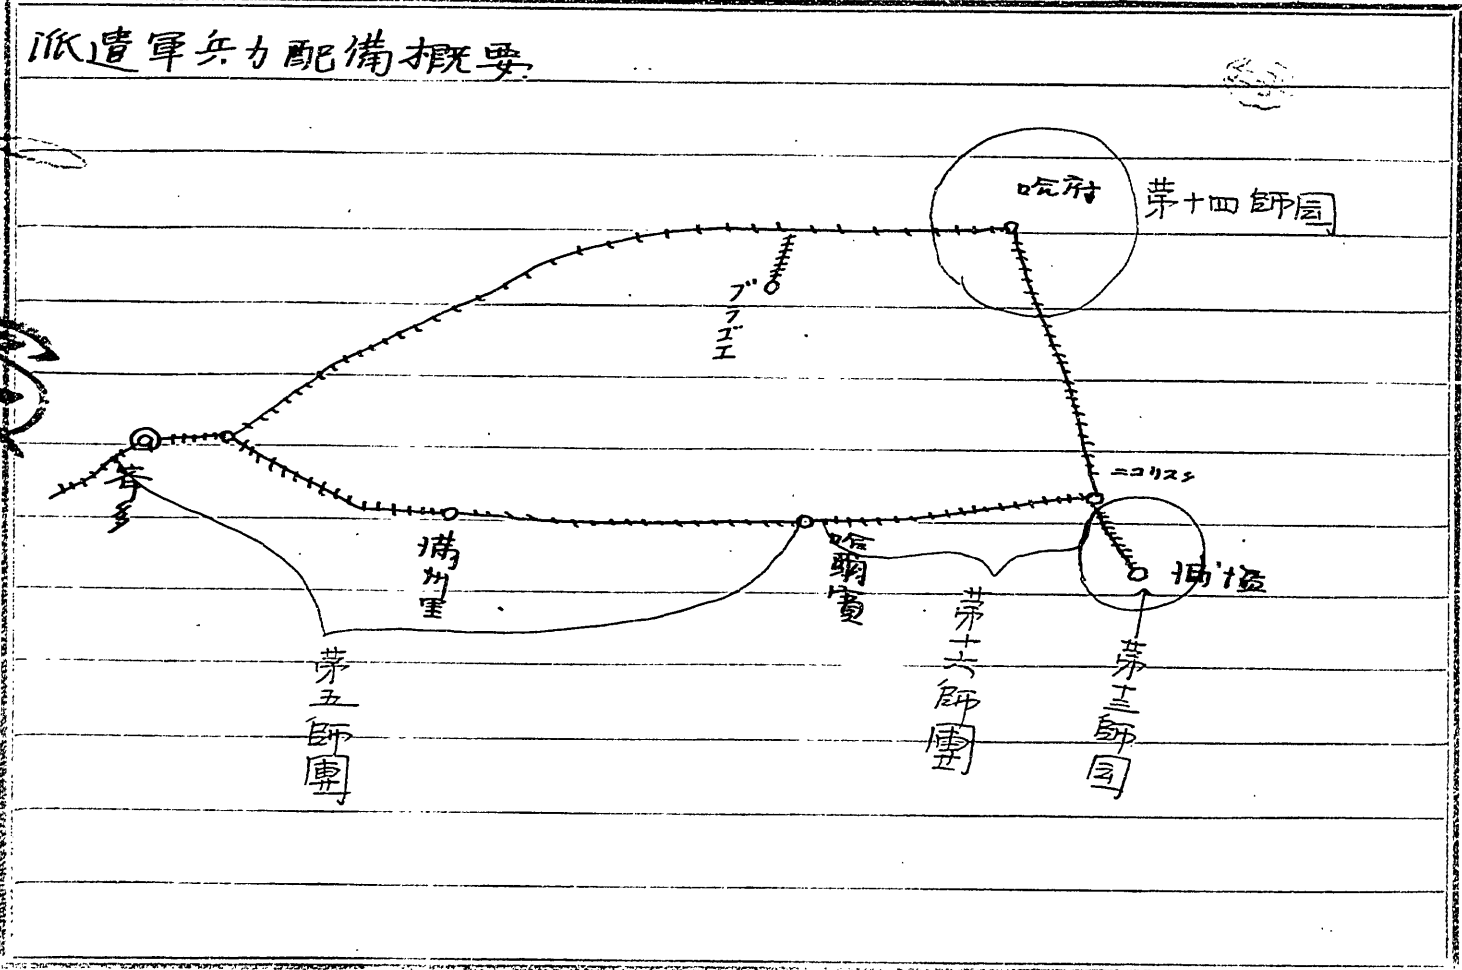 派遣軍兵力配備概要
哈府
第十四師団
ブラゴエ
ニコリスク
知多
満州里
哈爾賓
浦塩
第五師團
第十六師團
第十三師団